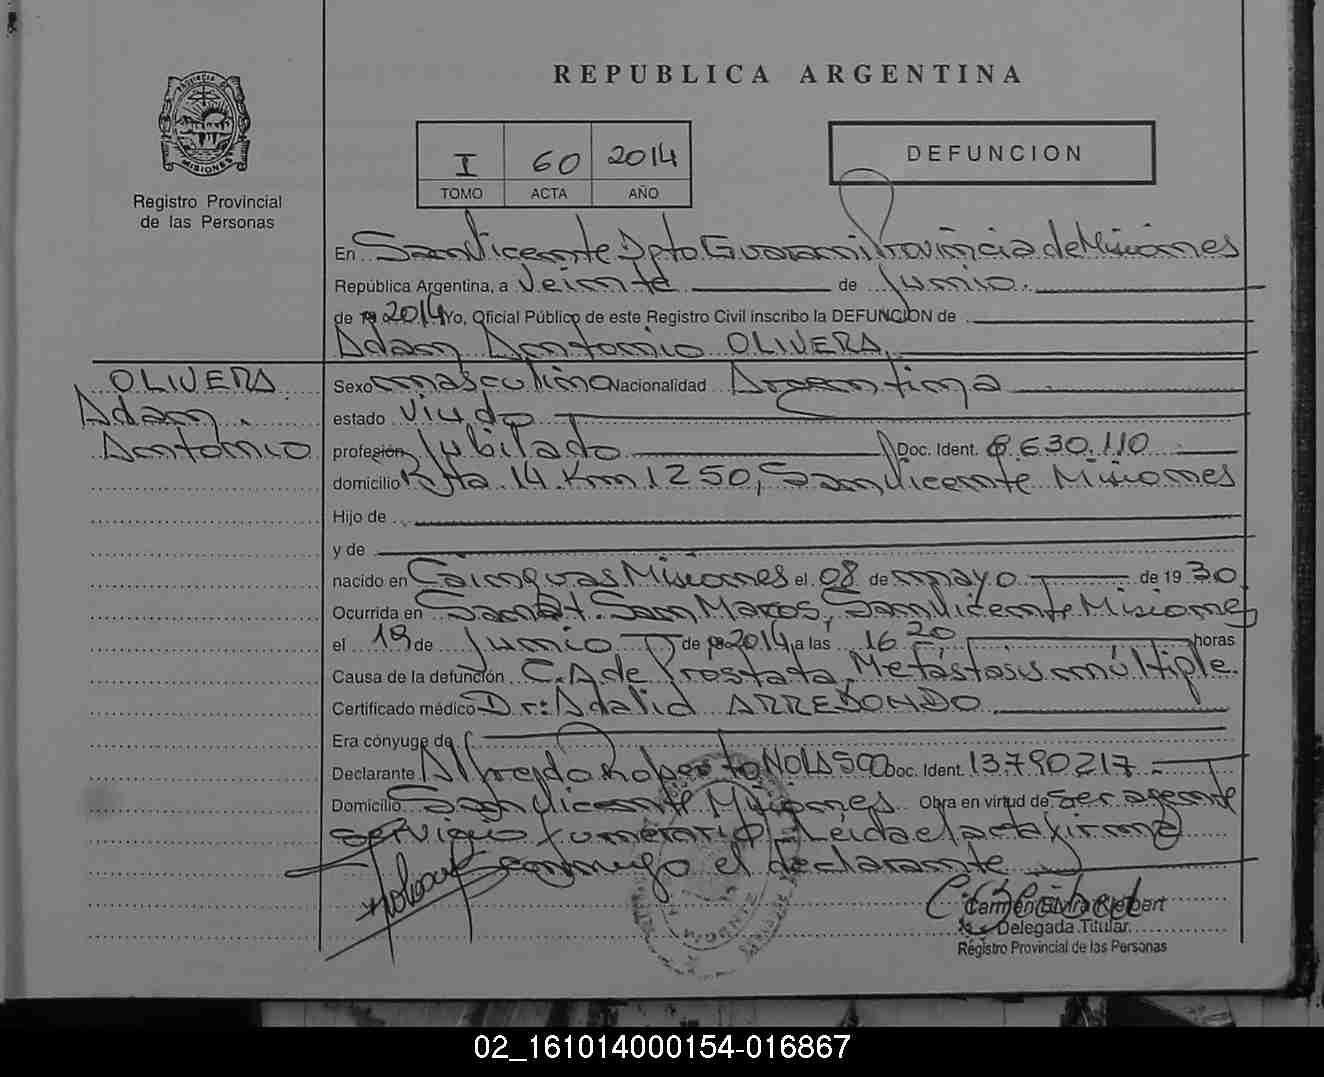 REPUBLICA ARGENTINA
PROVINCIA DE
MISIONES
Registro Provincial
de las Personas
I 60 2014
TOMO ACTA AÑO
DEFUNCION
En San Vicente Dpto Guarani Provincia de Misiones
República Argentina, a Veinte de Junio.
de 2014 Yo, Oficial Público de este Registro Civil inscribo la DEFUNCION de
Adan Antonio OLIVERA
OLIVERA
Adan
Antonio
Sexo masculino Nacionalidad Argentina
estado Viudo
profesión Jubilado Doc. Ident. 8630.110
domicilio Ruta 14 Km 1250, San Vicente Misiones
Hijo de
y de
nacido en Cainguas Misiones el 08 de mayo de 1930
Ocurrida en Sanat. San Marcos, San Vicente Misiones
el 19 de Junio de 2014 a las 16 20 horas
Causa de la defunción C.A de Prostata, Metástasis múltiple.
Certificado médico Dr: Adalid ARREDONDO
Era cónyuge de
Declarante Alfredo Roberto NOLASCO Doc. Ident. 13790217
Domicilio San Vicente Misiones Obra en virtud de ser agente
servicio funerario. Leida el acta firma
conmigo el declarante
Carmen Elvira
Delegada Titular
Registro Provincial de las Personas
02_161014000154-016867